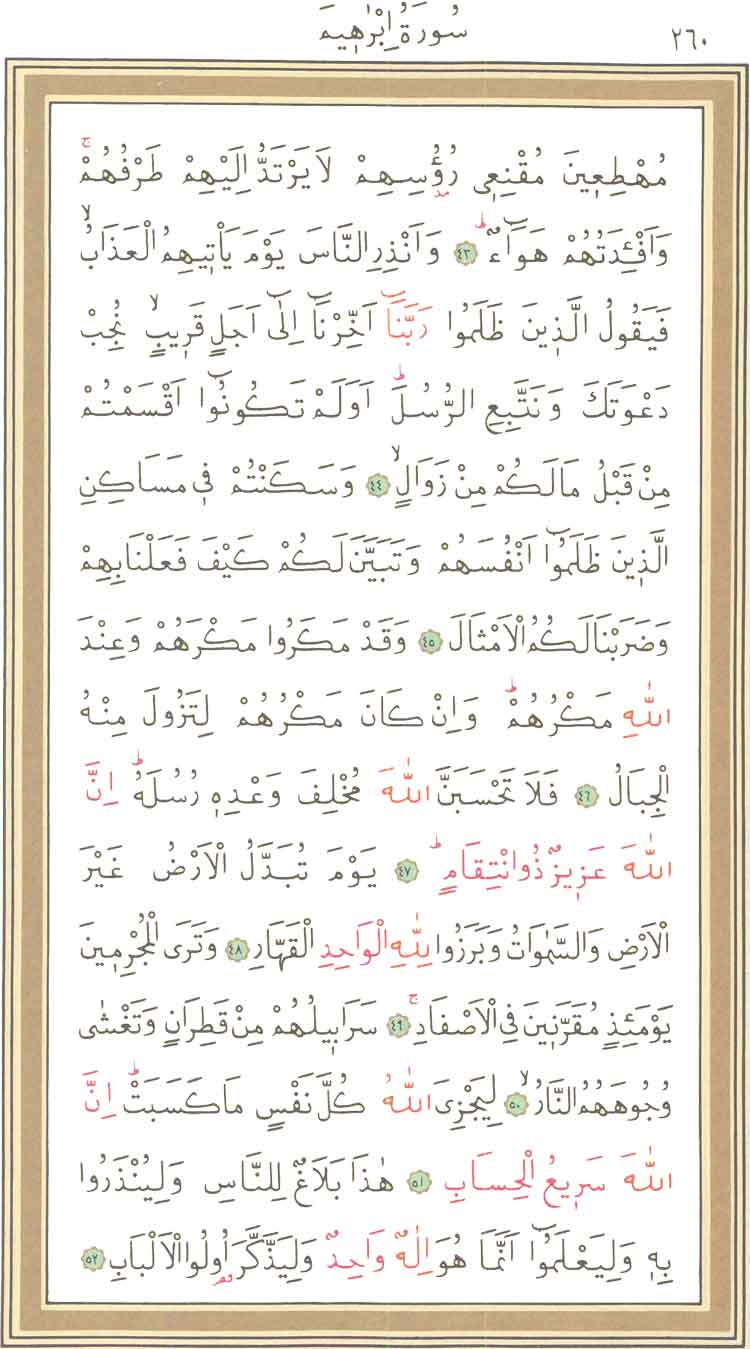 سُورَةُ اِبْرٰه۪يمَ ٢٦٠
مُهْطِع۪ينَ مُقْنِع۪ي رُؤُ۫سِهِمْ لَا يَرْتَدُّ اِلَيْهِمْ طَرْفُهُمْۚ
وَاَفْـِٔدَتُهُمْ هَوَٓاءٌۜ ﴿٤٣﴾ وَاَنْذِرِ النَّاسَ يَوْمَ يَأْت۪يهِمُ الْعَذَابُۙ
فَيَقُولُ الَّذ۪ينَ ظَلَمُوا رَبَّنَٓا اَخِّرْنَٓا اِلٰٓى اَجَلٍ قَر۪يبٍۙ نُجِبْ
دَعْوَتَكَ وَنَتَّبِعِ الرُّسُلَۜ اَوَلَمْ تَكُونُٓوا اَقْسَمْتُمْ
مِنْ قَبْلُ مَا لَكُمْ مِنْ زَوَالٍۙ ﴿٤٤﴾ وَسَكَنْتُمْ ف۪ي مَسَاكِنِ
الَّذ۪ينَ ظَلَمُٓوا اَنْفُسَهُمْ وَتَبَيَّنَ لَكُمْ كَيْفَ فَعَلْنَا بِهِمْ
وَضَرَبْنَا لَكُمُ الْاَمْثَالَ ﴿٤٥﴾ وَقَدْ مَكَرُوا مَكْرَهُمْ وَعِنْدَ
اللّٰهِ مَكْرُهُمْۜ وَاِنْ كَانَ مَكْرُهُمْ لِتَزُولَ مِنْهُ
الْجِبَالُ ﴿٤٦﴾ فَلَا تَحْسَبَنَّ اللّٰهَ مُخْلِفَ وَعْدِه۪ رُسُلَهُۜ اِنَّ
اللّٰهَ عَز۪يزٌ ذُو انْتِقَامٍۜ ﴿٤٧﴾ يَوْمَ تُبَدَّلُ الْاَرْضُ غَيْرَ
الْاَرْضِ وَالسَّمٰوَاتُ وَبَرَزُوا لِلّٰهِ الْوَاحِدِ الْقَهَّارِ ﴿٤٨﴾ وَتَرَى الْمُجْرِم۪ينَ
يَوْمَئِذٍ مُقَرَّن۪ينَ فِي الْاَصْفَادِۚ ﴿٤٩﴾ سَرَاب۪يلُهُمْ مِنْ قَطِرَانٍ وَتَغْشٰى
وُجُوهَهُمُ النَّارُۙ ﴿٥٠﴾ لِيَجْزِيَ اللّٰهُ كُلَّ نَفْسٍ مَا كَسَبَتْۜ اِنَّ
اللّٰهَ سَر۪يعُ الْحِسَابِ ﴿٥١﴾ هٰذَا بَلَاغٌ لِلنَّاسِ وَلِيُنْذَرُوا
بِه۪ وَلِيَعْلَمُٓوا اَنَّمَا هُوَ اِلٰهٌ وَاحِدٌ وَلِيَذَّكَّرَ اُو۬لُوا الْاَلْبَابِ ﴿٥٢﴾